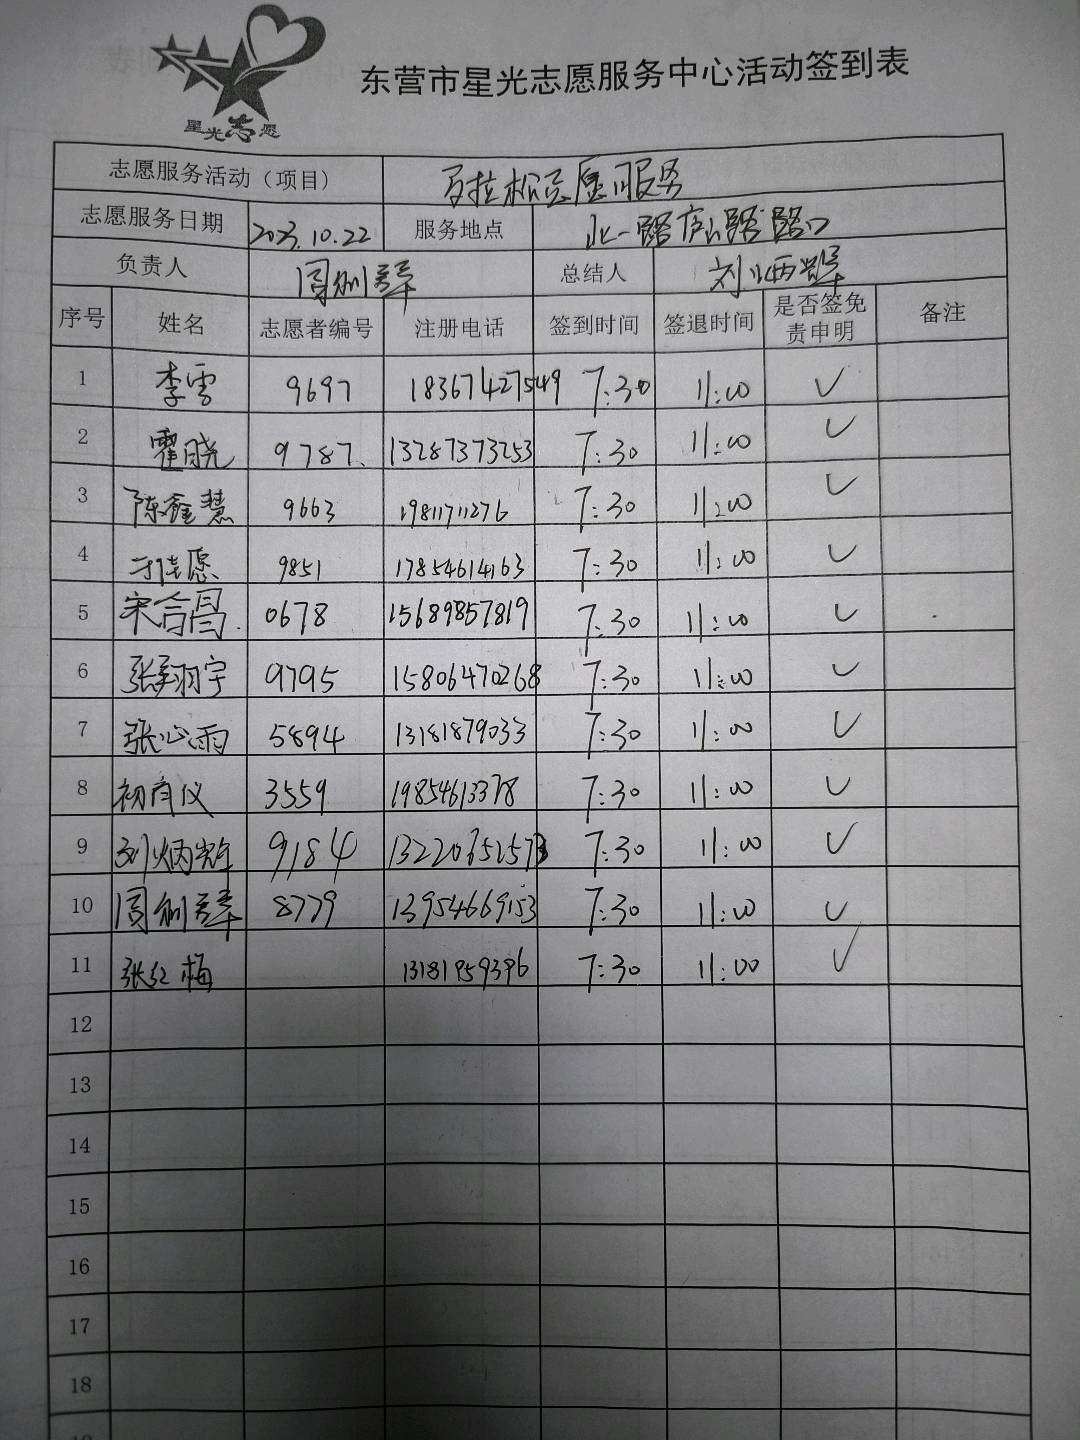 星光志愿
东营市星光志愿服务中心活动签到表
志愿服务活动（项目） 马拉松志愿服务
志愿服务日期 2023.10.22 服务地点 北一路庐山路路口
负责人 总结人 刘炳
序号 姓名 志愿者编号 注册电话 签到时间 签退时间 是否签免责申明 备注
1 李雪 9697 18367427549 7:30 11:00 ✓
2 霍晓 9787. 13287373253 7:30 11:00 ✓
3 陈鑫慧 9663 19811711276 7:30 11:00 ✓
4 佳愿 9851 17854614163 7:30 11:00 ✓
5 宋合昌. 0678 15689857819 7:30 11:00 ✓
6 张翔宇 9795 15806470268 7:30 11:00 ✓
7 张心雨 5894 13181879033 7:30 11:00 ✓
8 初育仪 3559 19854613378 7:30 11:00 ✓
9 刘炳 9184 7:30 11:00 ✓
10 8779 13954669153 7:30 11:00 ✓
11 张红梅 13181959396 7:30 11:00 ✓
12
13
14
15
16
17
18